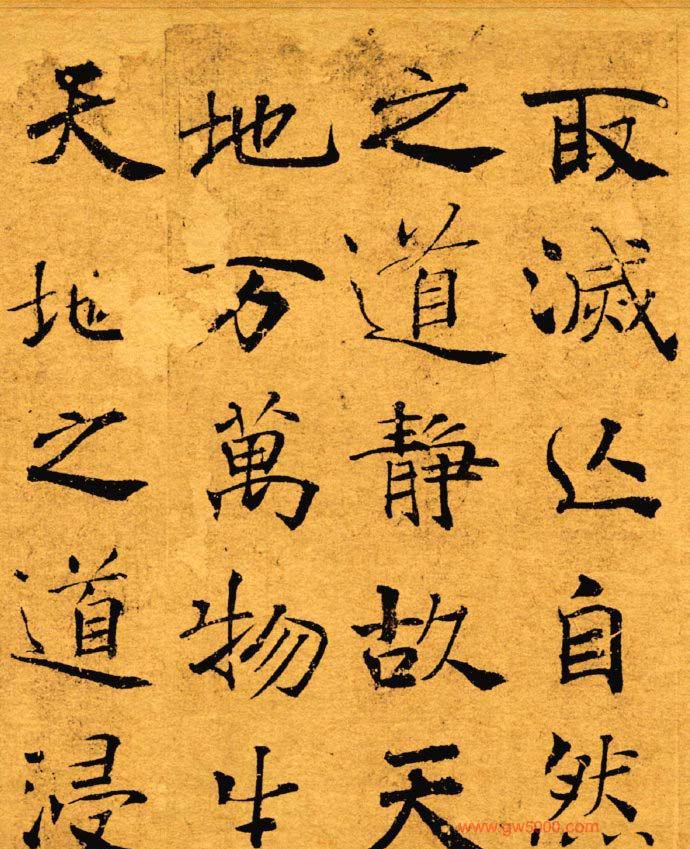 取滅亾自然
之道静故天
地万萬物生
天地之道浸
www.gw5900.com